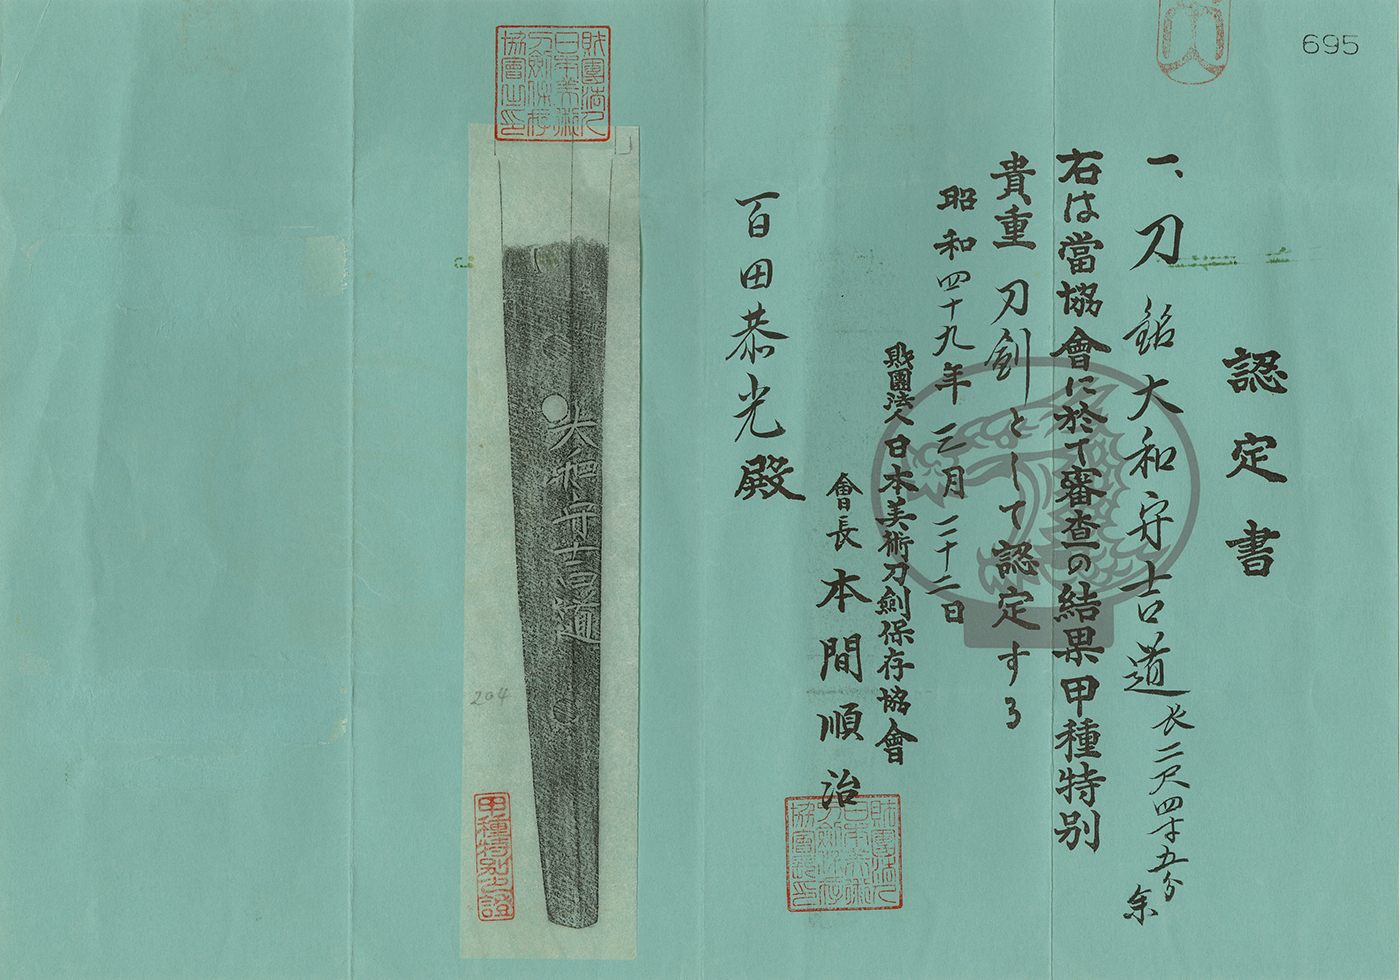 695
認定書
一、刀 銘大和守吉道 長二尺四寸五分余
右は當協會に於て審査の結果甲種特別
貴重刀剣として認定する
昭和四十九年三月二十二日
財團法人日本美術刀劍保存協會
會長 本間順治
百田恭光殿
財團法人
日本美術
刀劍保存
協會長印
財團法人
日本美術
刀劍保存
協會之印
大和守吉道
204
甲種特別之證